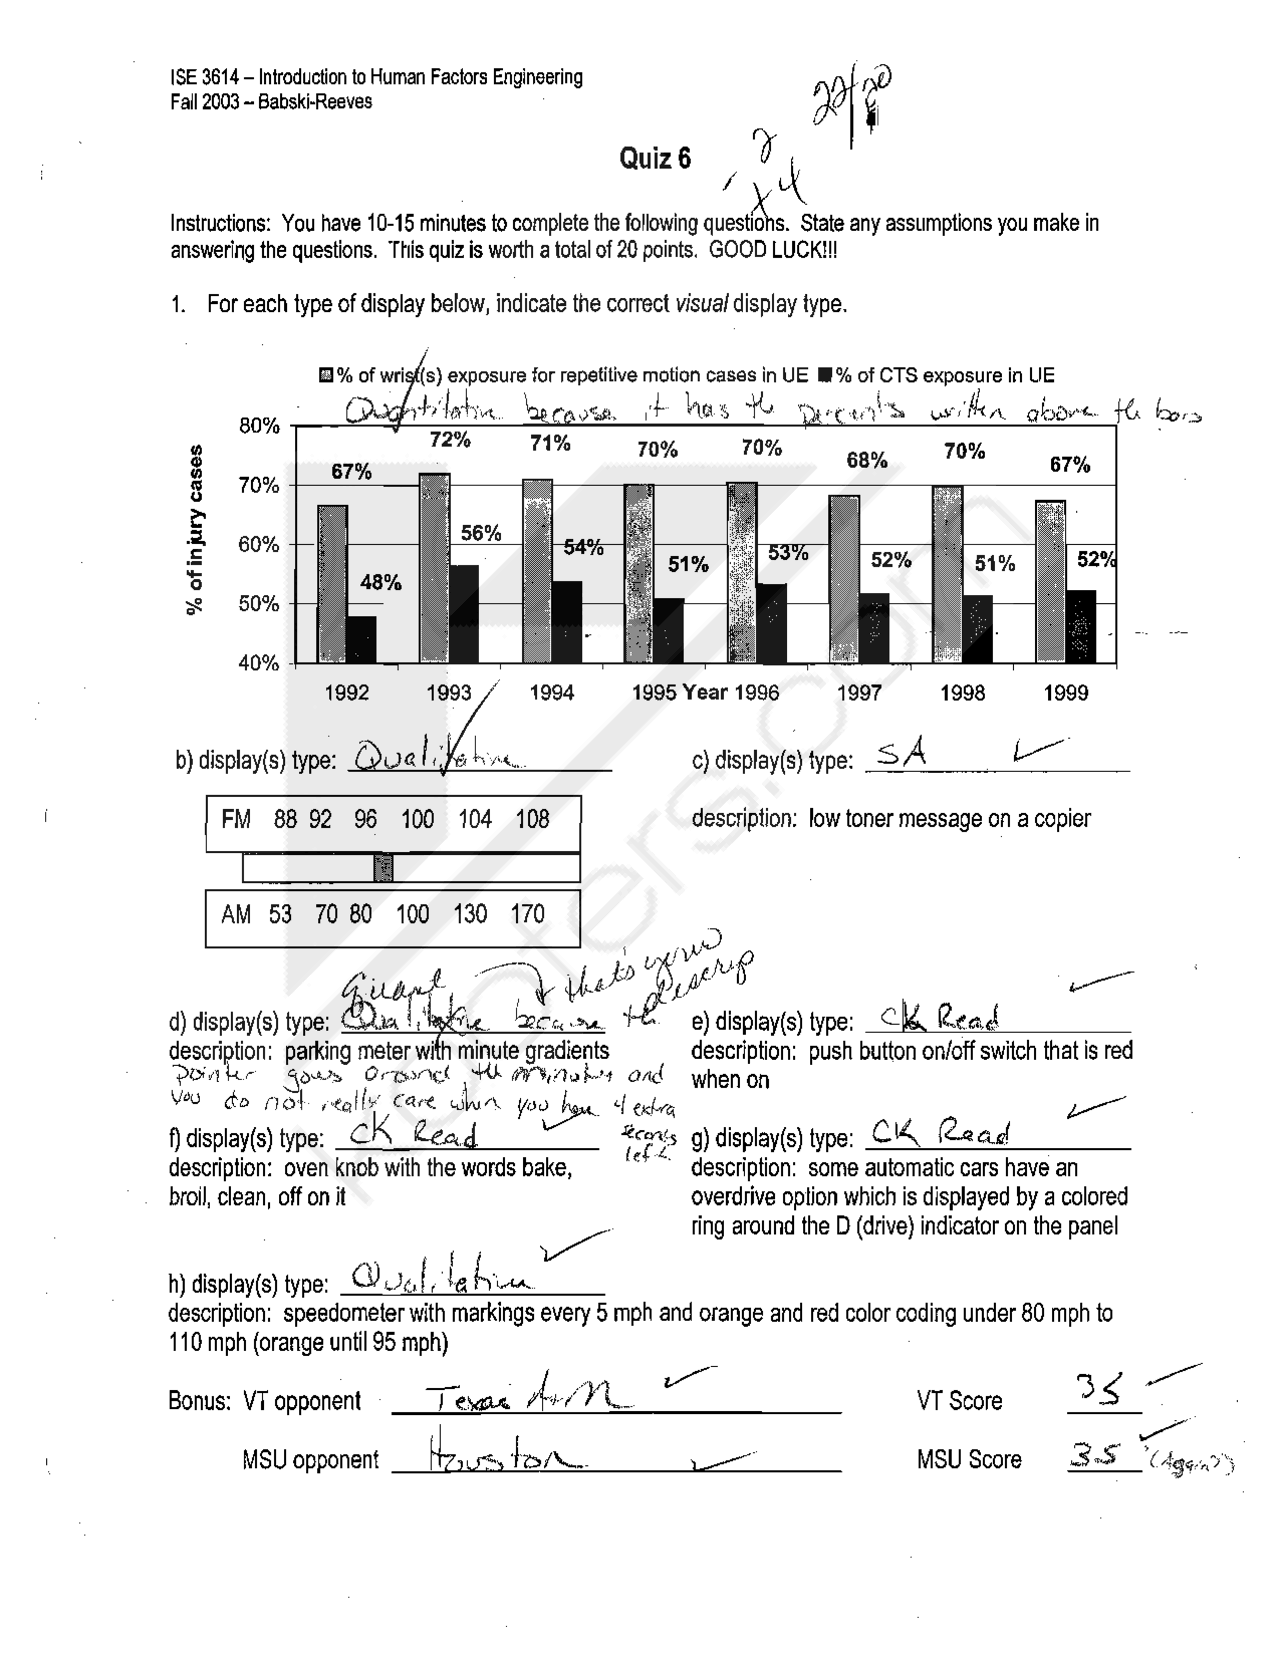 ISE 3614 – Introduction to Human Factors Engineering
Fall 2003 – Babski-Reeves
22/20
Quiz 6
2
x4
Instructions: You have 10-15 minutes to complete the following questions. State any assumptions you make in
answering the questions. This quiz is worth a total of 20 points. GOOD LUCK!!!
1. For each type of display below, indicate the correct visual display type.
% of wrist(s) exposure for repetitive motion cases in UE % of CTS exposure in UE
Quantitative because it has the percents written above the bars
% of injury cases
80%
70%
60%
50%
40%
67% 72% 71% 70% 70% 68% 70% 67%
48% 56% 54% 51% 53% 52% 51% 52%
1992 1993 1994 1995 Year 1996 1997 1998 1999
b) display(s) type: Qualitative
c) display(s) type: SA
FM 88 92 96 100 104 108
description: low toner message on a copier
AM 53 70 80 100 130 170
Quant that's your descrip
d) display(s) type: Qualitative because the
e) display(s) type: CK Read
description: parking meter with minute gradients
description: push button on/off switch that is red
when on
pointer goes around the minutes and
you do not really care when you have 4 extra
seconds
left.
f) display(s) type: CK Read
g) display(s) type: CK Read
description: oven knob with the words bake,
broil, clean, off on it
description: some automatic cars have an
overdrive option which is displayed by a colored
ring around the D (drive) indicator on the panel
h) display(s) type: Qualitative
description: speedometer with markings every 5 mph and orange and red color coding under 80 mph to
110 mph (orange until 95 mph)
Bonus: VT opponent Texas A+M VT Score 35
MSU opponent Houston MSU Score 35 (Again?)
koofers.com